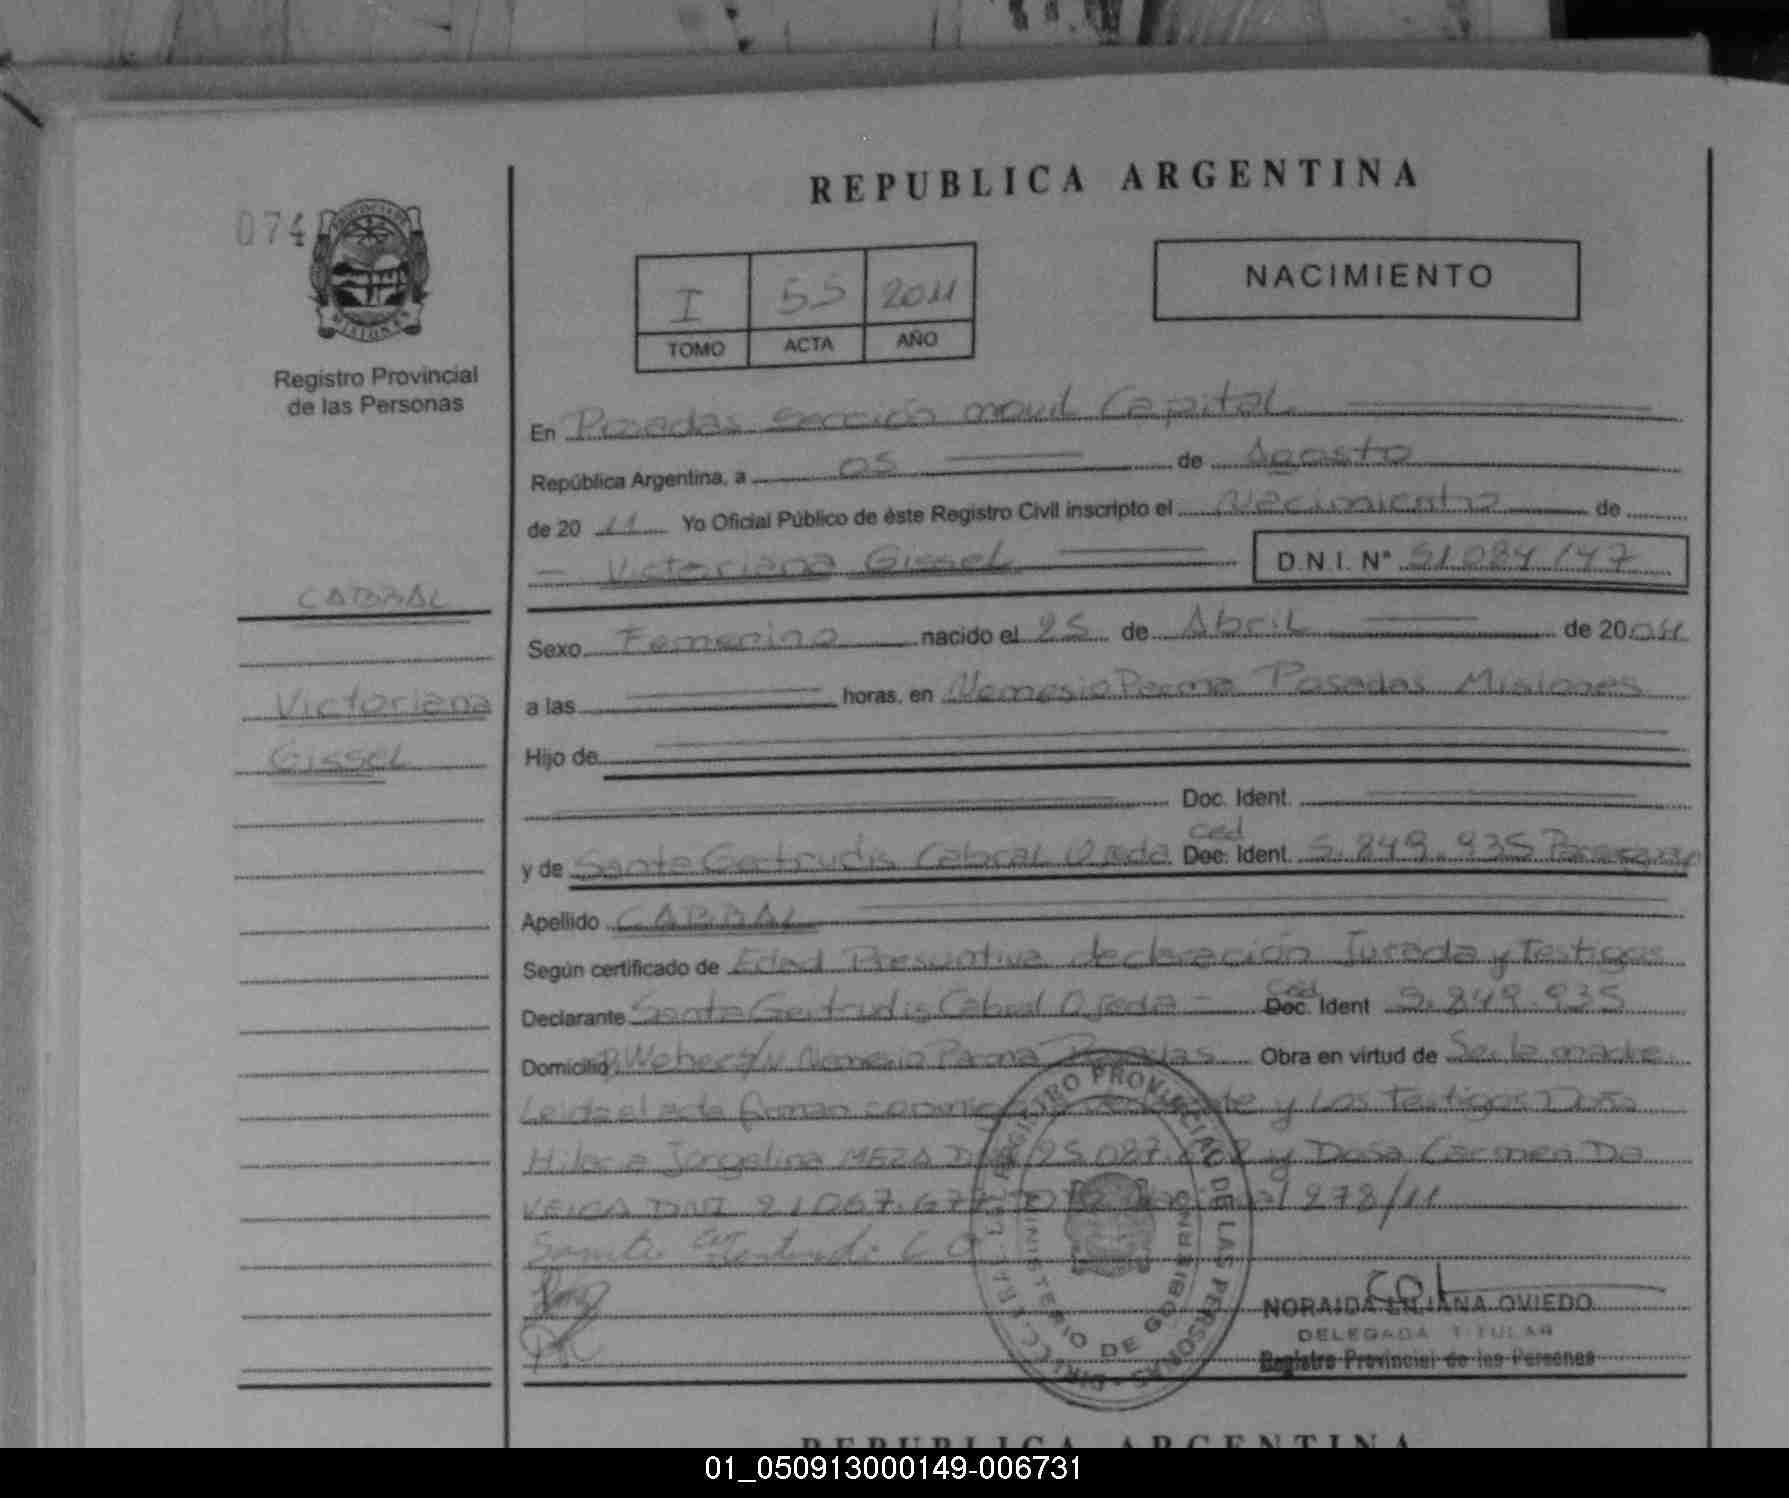 REPUBLICA ARGENTINA
074
PROVINCIA DE
MISIONES
Registro Provincial
de las Personas
I 55 2011
TOMO ACTA AÑO
NACIMIENTO
En Posadas sección movil Capital
República Argentina, a 05 de Agosto
de 20 11 Yo Oficial Público de éste Registro Civil inscripto el Nacimiento de
Victoriana Gissel D.N.I. Nº 51.084.147
CABRAL
Victoriana
Gissel
Sexo Femenino nacido el 25 de Abril de 20
a las horas, en Nemesio Parma Posadas Misiones
Hijo de
Doc. Ident.
y de Santa Gertrudis Cabral Ojeda Ced Doc. Ident. 5.849.935 Paraguay
Apellido CABRAL
Según certificado de Edad Presuntiva declaración Jurada y Testigos
Declarante Santa Gertrudis Cabral Ojeda - Ced Doc. Ident 5.849.935
Domicilio Weber s/n Nemesio Parma Posadas Obra en virtud de Ser la madre
Leida el acta firman y Los Testigos Doña
Jorgelina MEZA 25.087. y Doña Carmen Da
VEIGA DNI 21.067.677 278/11
Santa C O
REGISTRO PROVINCIAL DE LAS PERSONAS
MINISTERIO DE GOBIERNO
NORAIDA LILIANA OVIEDO
DELEGADA TITULAR
Registro Provincial de las Personas
REPUBLICA ARGENTINA
01_050913000149-006731